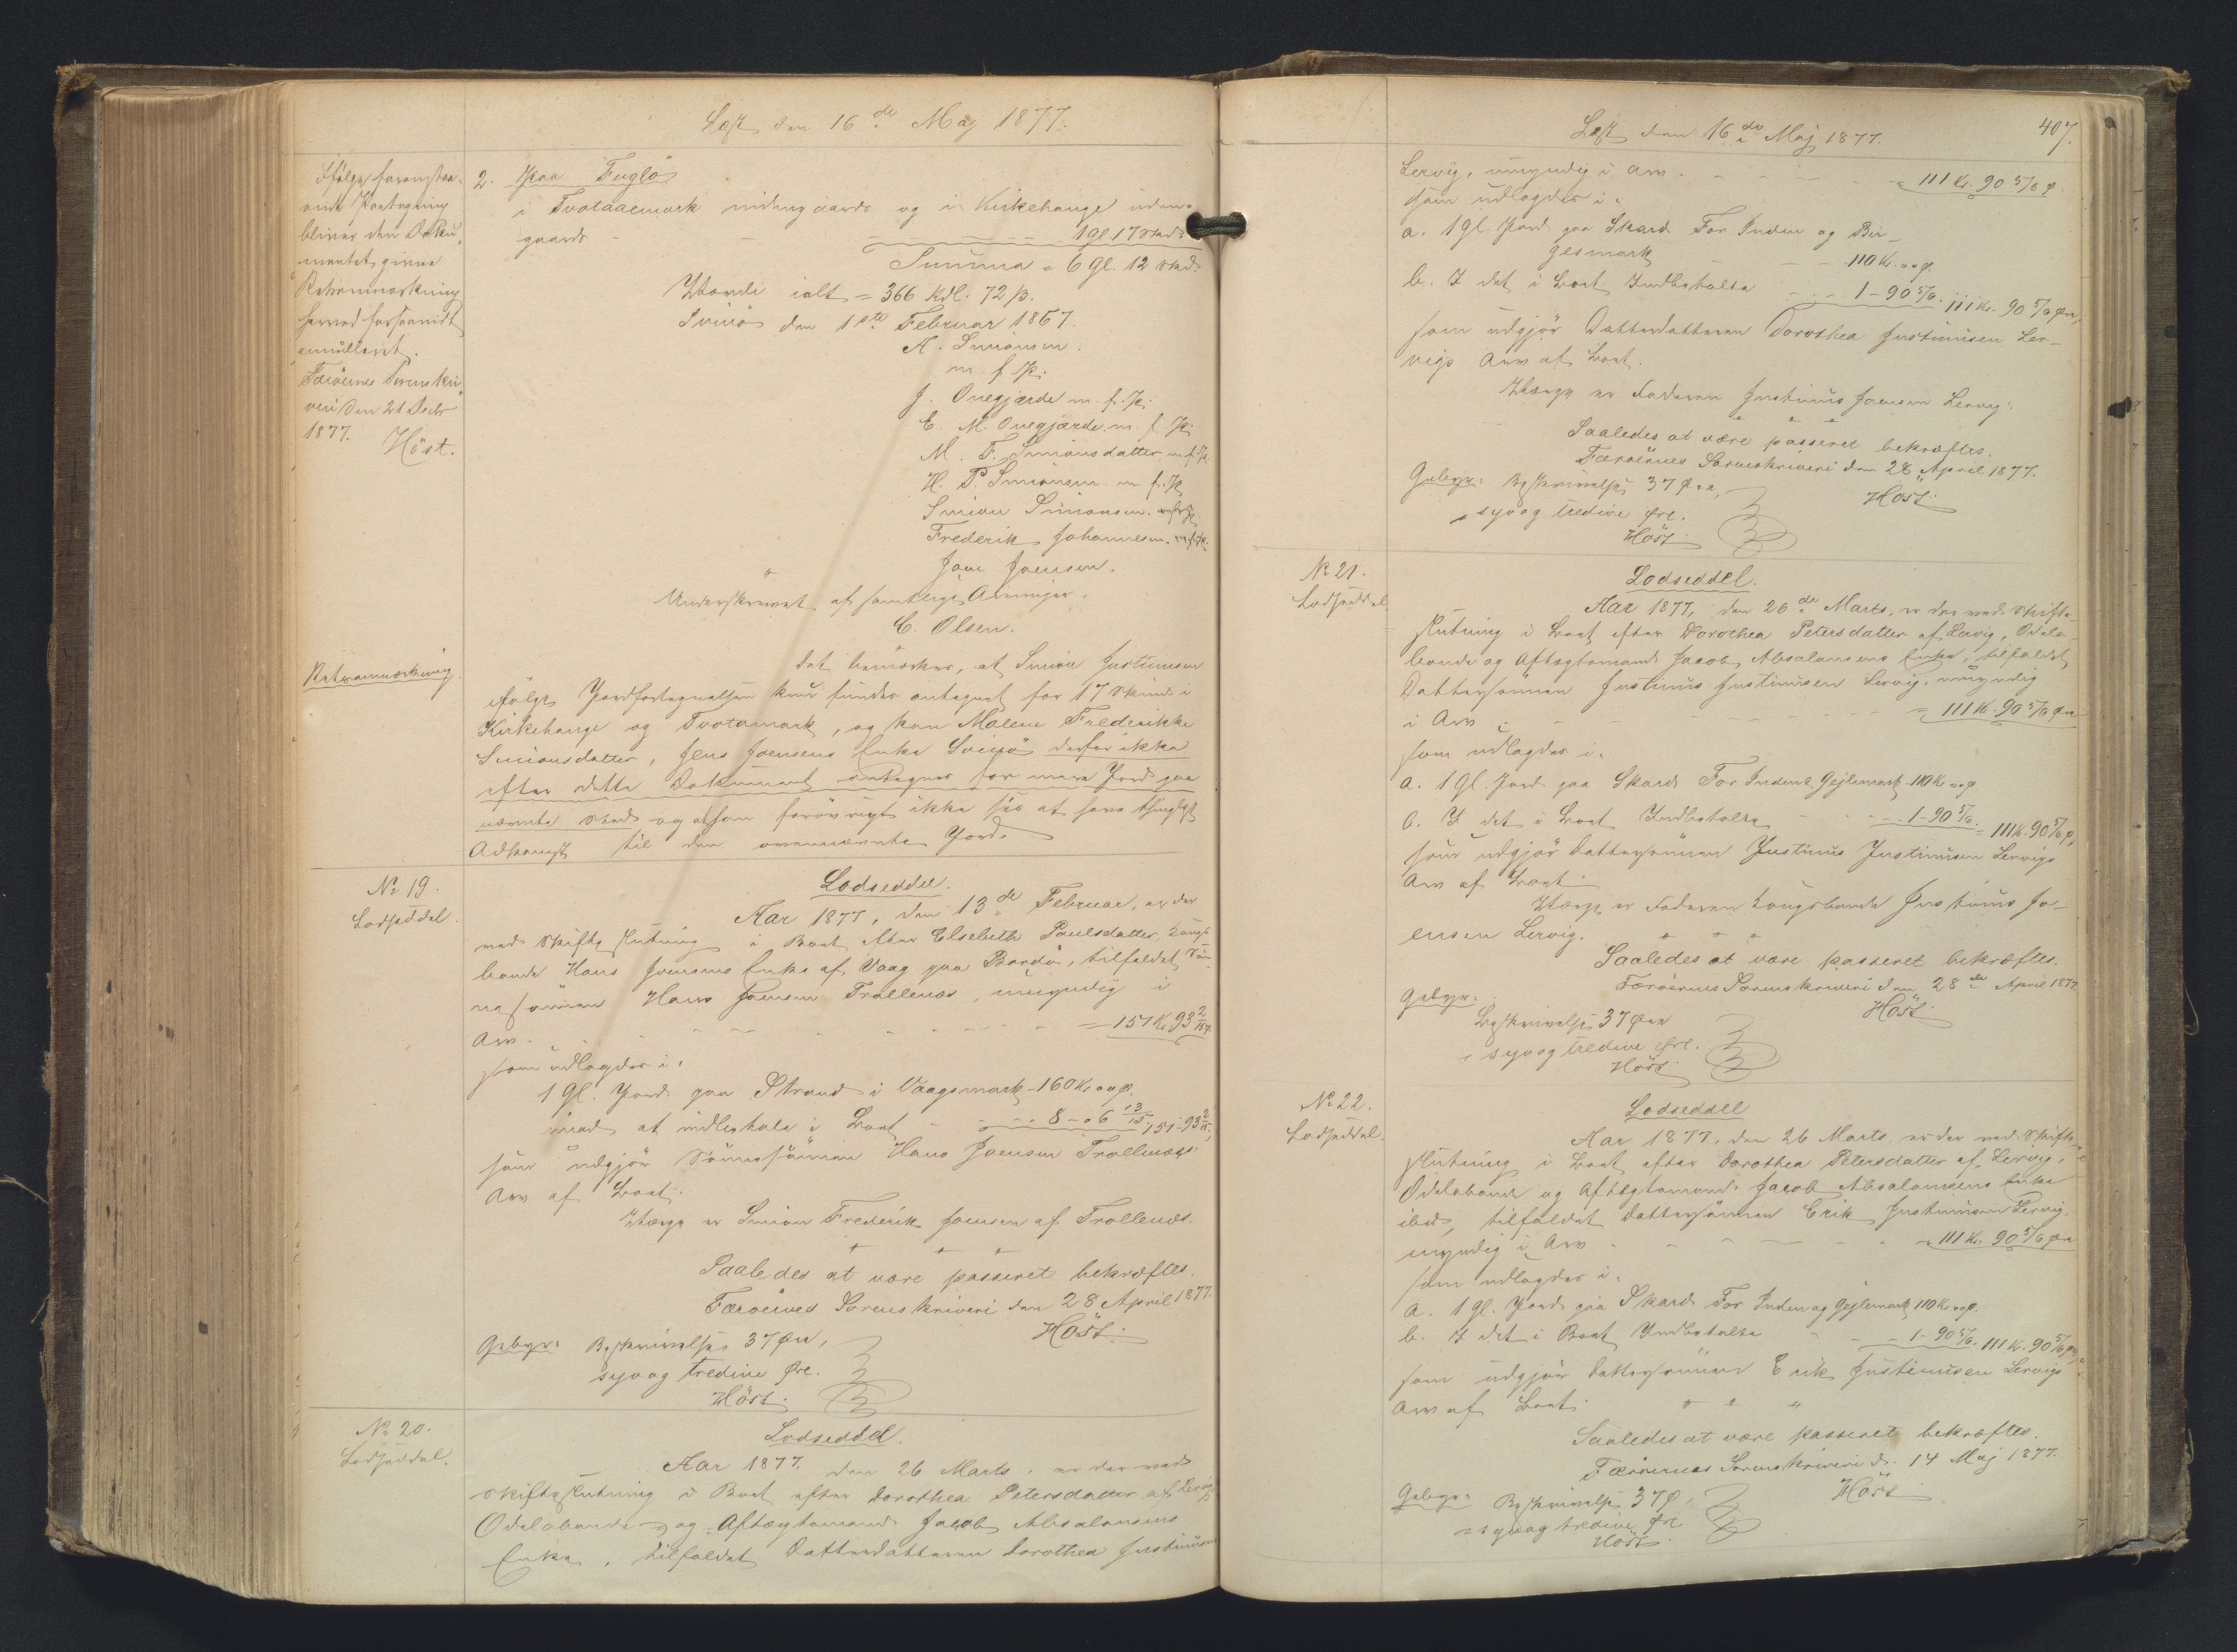 Læst den 16de Maj 1877.
Ifølge foranstaa-
ende Paategning
bliver den Doku-
mentet givne
Retsanmærkning
herved forsaavidt
annulleret.
Færöernes Sorenskri-
veri den 21 Decbr
1877. Höst.
2. Paa Fuglö
i Tvotaaemark indengaards og i Kirkehauge uden-
gaards - - - 1 Gl 17 Skd:
Summa = 6 Gl. 12 Skd:
Værdi ialt = 366 Rdl. 72 ß.
Svinö den 1ste Februar 1867.
A. Simonsen.
m. f. P:
J. Onegjærde m. f. P:
E. M. Onegjærde. m. f. P:
M. F. Simonsdatter m. f. P.
H. P. Simonsen. m. f. P.
Simon Simonsen. m. f. P.
Frederik Johannesen. m. f. P.
Joen Joensen.
Underskrevet af samtlige Arvinger.
C. Olsen.
Retsanmærkning.
Det bemærkes, at Simon Justinussen
ifølge Jordfortegnelsen kun findes antegnet for 17 Skind i
Kirkehauge og Tvotamark, og kan Malene Frederikke
Simonsdatter, Jens Joensens Enke Svinö derfor ikke
efter dette Dokument antegnes for mere Jord paa
nævnte Sted og at han forövrigt ikke sees at have thinglæst
Adkomst til den ovennævnte Jord.
No 19.
Lodseddel.
Lodseddel.
Aar 1877, den 13de Februar, er der
ved Skifteslutning i Boet efter Elsebeth Paulsdatter, Kongs-
bonde Hans Joensens Enke af Vaag paa Bordö, tilfaldet Sön-
nesönnen Hans Joensen Tröllenæs, umyndig i
Arv - - - = 151 Kr. 93 2/15 Ø.
som udlagdes i:
1 Gl. Jord paa Strand i Vaagsmark - 160 Kr. 00 Ø.
imod at indbetale i Boet - - 8 - 06 13/15 151 - 93 2/15,
som udgjör Sönnesönnen Hans Joensen Trollenæs:
Arv af Boet.
Værge er Simon Frederik Joensen af Trollenæs.
Saaledes at være passeret bekræftes.
Færöernes Sorenskriveri den 28 April 1877.
Höst.
Gebyr: Beskrivelse 37 Øre,
syv og tredive Øre.
Höst.
No 20.
Lodseddel.
Lodseddel.
Aar 1877, den 26 Marts, er der ved
Skifteslutning i Boet efter Dorothea Petersdatter af Lervig,
Odelsbonde og Aftægtsmand Jacob Absalonsens
Enke, tilfaldet Datterdatteren Dorothea Justinusen
407.
Læst den 16de Maj 1877.
Lervig, umyndig i Arv - - - = 111 Kr. 90 5/6 Ø.
som udlagdes i:
a. 1 Gl. Jord paa Skard For Inden og Bir-
gesmark - - 110 Kr. 00 Ø.
b. I det i Boet Indbetalte - - 1 - 90 5/6. 111 Kr. 90 5/6 Øre,
som udgjör Datterdatteren Dorothea Justinusen Ler-
vigs Arv af Boet.
Værge er Faderen Justinus Joensen Lervig.
Saaledes at være passeret bekræftes.
Færöernes Sorenskriveri den 28 April 1877.
Höst.
Gebyr: Beskrivelse 37 Øre,
syv og tredive Øre.
Höst.
No 21.
Lodseddel.
Lodseddel.
Aar 1877, den 26de Marts, er der ved Skifte-
slutning i Boet efter Dorothea Petersdatter af Lervig, Odels-
bonde og Aftægtsmand Jacob Absalonsens Enke, tilfaldet
Dattersönnen Justinus Justinusen Lervig, umyndig
i Arv - - - = 111 Kr. 90 5/6 Øre
som udlagdes i:
a. 1 Gl. Jord paa Skard For Inden & Gejlemark 110 Kr 00 Ø.
b. I det i Boet Indbetalte - - 1 - 90 5/6. = 111 Kr. 90 5/6 Ø,
som udgjör Dattersönnen Justinus Justinusen Lervigs
Arv af Boet.
Værge er Faderen Kongsbonde Justinus Jo-
ensen Lervig.
Saaledes at være passeret bekræftes.
Færöernes Sorenskriveri den 28de April 1877.
Höst.
Gebyr:
Beskrivelse 37 Øre
syv og tredive Øre.
Höst.
No 22.
Lodseddel.
Lodseddel
Aar 1877, den 26 Marts er der ved Skifte-
slutning i Boet efter Dorothea Petersdatter af Lervig,
Odelsbonde og Aftægtsmand Jacob Absalonsens Enke
ibd, tilfaldet Dattersönnen Erik Justinusen Lervig.
myndig i Arv - - - = 111 Kr. 90 5/6 Øre
som udlagdes i:
a. 1 Gl. Jord paa Skard For Inden og Gejlemark 110 Kr 00 Ø.
b. I det i Boet Indbetalte - - 1 - 90 5/6. 111 Kr. 90 5/6 Øre,
som udgjör Dattersönnen Erik Justinusen Lervigs
Arv af Boet.
Saaledes at være passeret bekræftes.
Færöernes Sorenskriveri d. 14 Maj 1877.
Höst
Gebyr: Beskrivelse 37 Ø,
syv og tredive Øre
Höst.